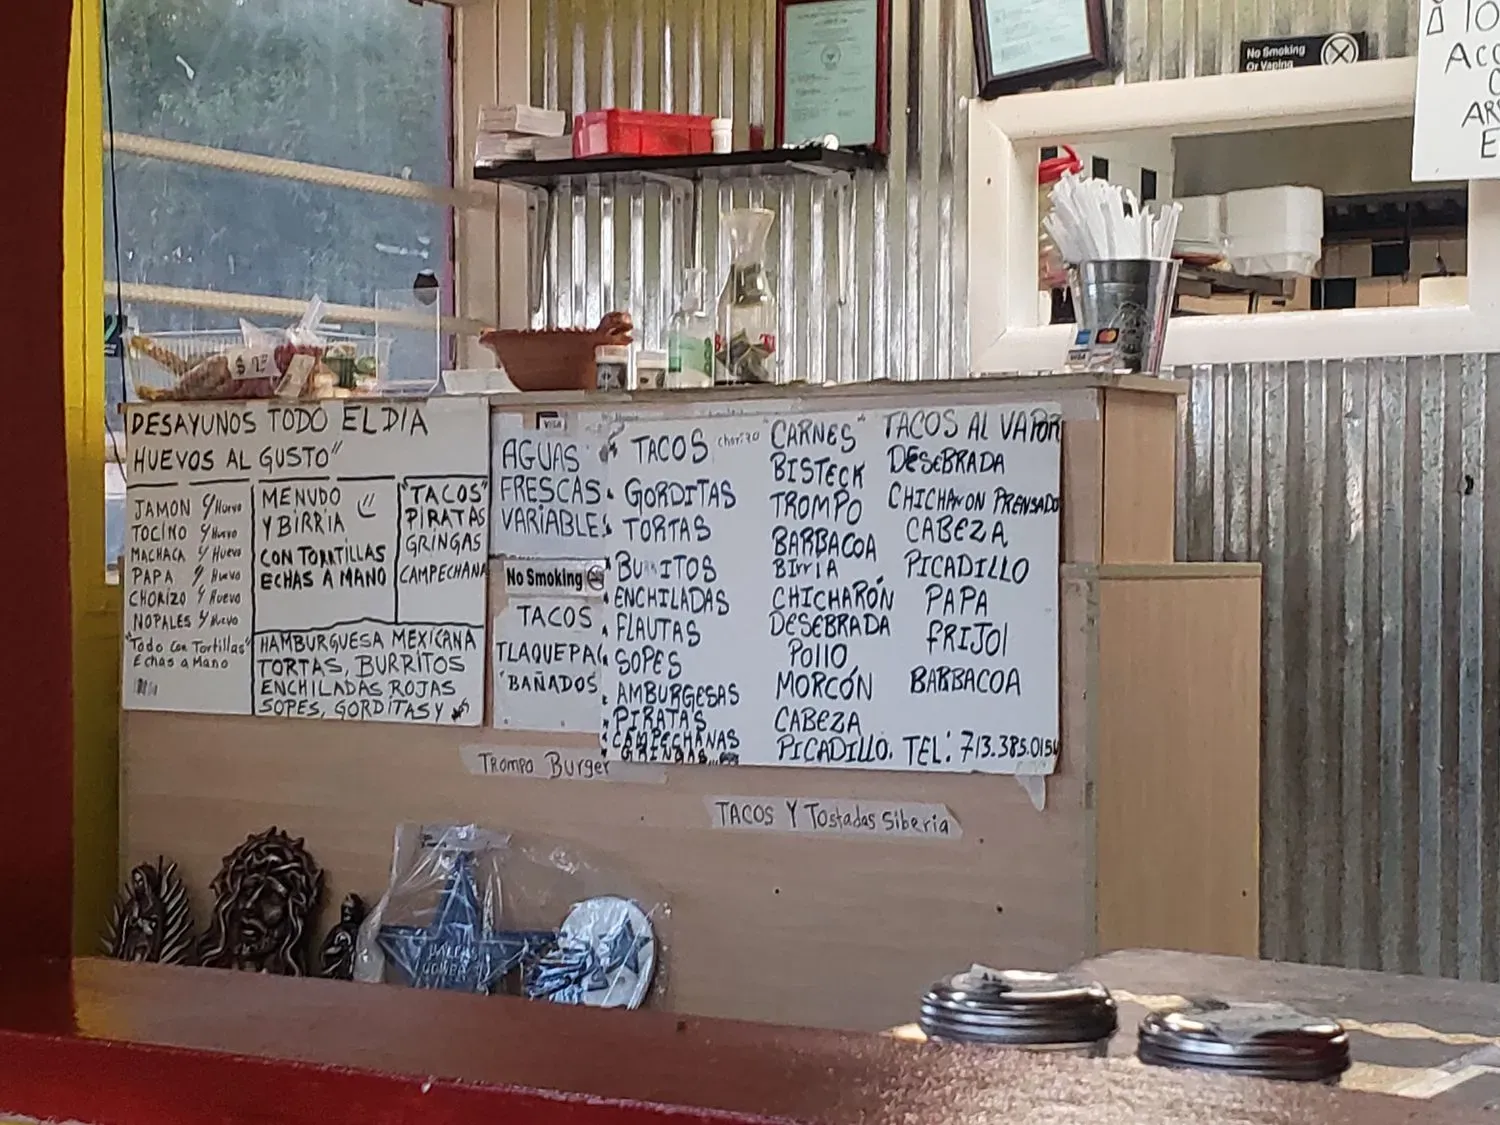 No Smoking
Or Vaping
VISA
DESAYUNOS TODO EL DIA
HUEVOS AL GUSTO"
JAMON c/Huevo
TOCINO c/Huevo
MACHACA c/Huevo
PAPA c/Huevo
CHORIZO c/Huevo
NOPALES c/Huevo
"Todo Con Tortillas"
Echas a Mano
MENUDO
Y BIRRIA
CON TORTILLAS
ECHAS A MANO
"TACOS"
PIRATAS
GRINGAS
CAMPECHANA
HAMBURGUESA MEXICANA
TORTAS, BURRITOS
ENCHILADAS ROJAS
SOPES, GORDITAS Y
VISA
AGUAS
FRESCAS
VARIABLES
No Smoking
TACOS
TLAQUEPA
"BAÑADOS
TACOS chorizo
GORDITAS
TORTAS
BURRITOS
ENCHILADAS
FLAUTAS
SOPES
AMBURGESAS
PIRATAS
CAMPECHANAS
GRINGAS
"CARNES"
BISTECK
TROMPO
BARBACOA
BIrriA
CHICHARÓN
DESEBRADA
POLLO
MORCÓN
CABEZA
PICADILLO.
TACOS AL VAPOR
DESEBRADA
CHICHARON PRENSADO
CABEZA
PICADILLO
PAPA
FRIJOl
BARBACOA
TEL: 713.385.015
Trompo Burger
TACOS Y Tostadas Siberia